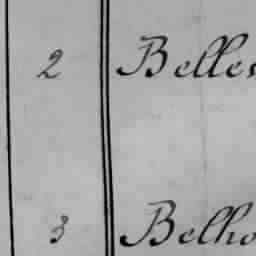 2 Belles
3 Belho